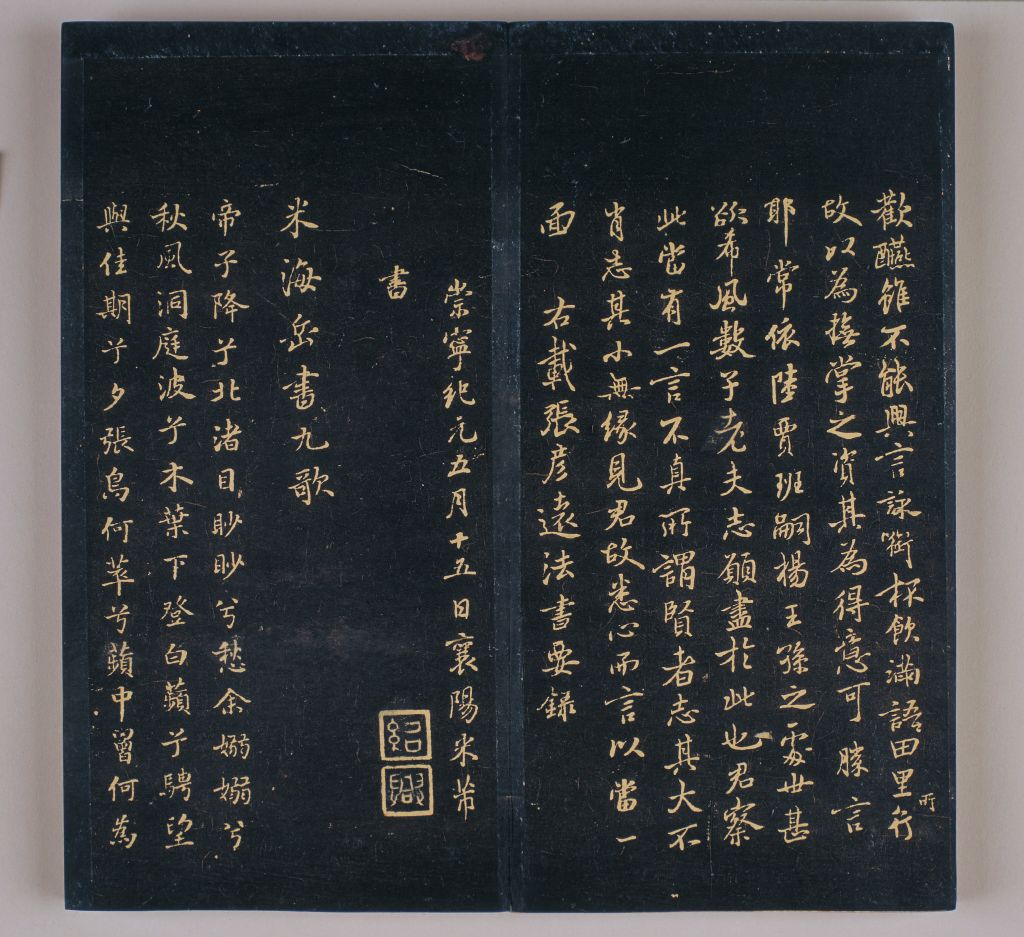 歡醼雖不能興言詠銜杯飲滿語田里所行
故以為撫掌之資其為得意可勝言
耶常依陸賈班嗣楊王孫之處世甚
欲希風數子老夫志願盡於此也君察
此當有一言不真所謂賢者志其大不
肖志其小無緣見君故悉心而言以當一
面 右載張彥遠法書要錄
崇寧紀元五月十五日襄陽米芾
書
紹興
米海岳書九歌
帝子降兮北渚目眇眇兮愁余嫋嫋兮
秋風洞庭波兮木葉下登白蘋兮騁望
與佳期兮夕張鳥何萃兮蘋中罾何為